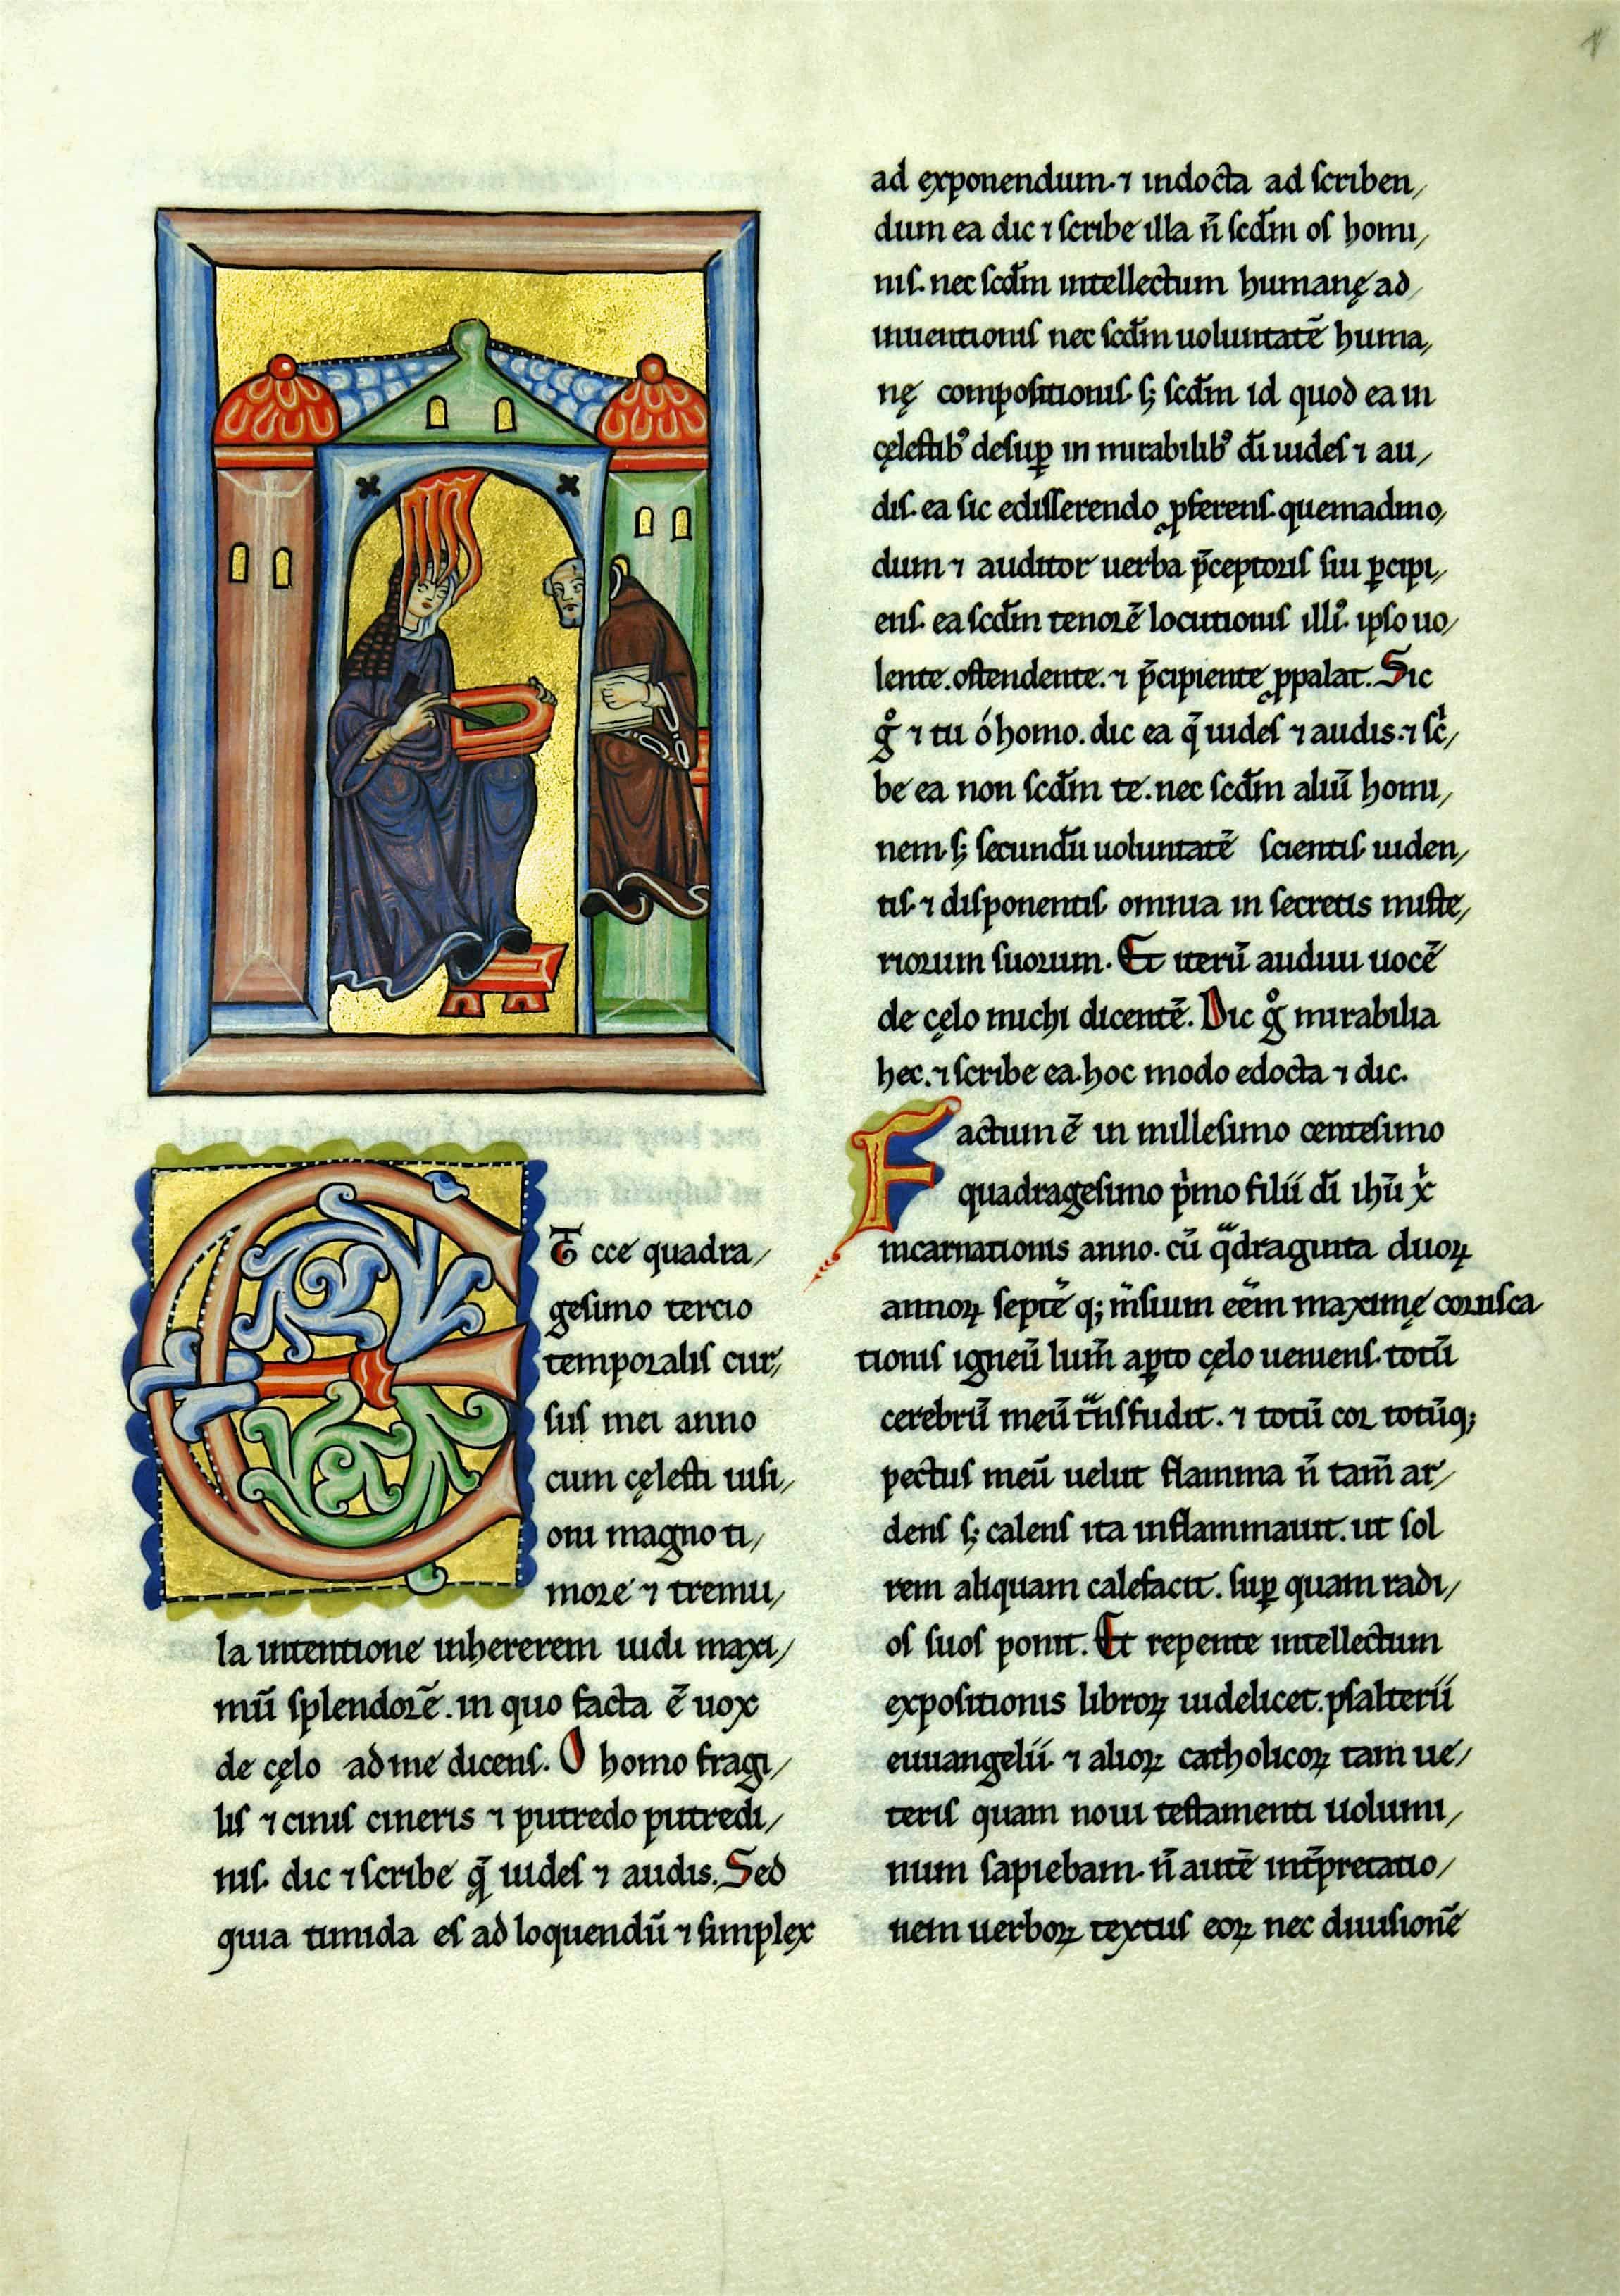 Et cce quadra/
gesimo tercio
temporalıſ cur/
ſuſ meı anno
cum cęleſti uıſı/
onı magno tı/
more ⁊ tremu/
la ıntentıone ınhererem uıdı maxı/
mū ſplendorē. ın quo facta ē uox
de cęlo ad me dicenſ. O homo fragı/
lıſ ⁊ cınıſ cınerıs ⁊ putredo putredı/
nıſ. dıc ⁊ ſcrıbe q̄ uıdeſ ⁊ audıs. Sed
quıa tımıda eſ ad loquendū ⁊ ſımplex
ad exponendum. ⁊ ındocta ad ſcrıben/
dum ea dıc ⁊ ſcrıbe ılla n̄ ſcd̄m oſ homı/
nıſ. nec ſcd̄m ıntellectum humanę ad/
ınuentıonıſ nec ſcd̄m uoluntatē huma/
nę compoſıtıonıſ. ſꝫ ſcd̄m ıd quod ea ın
cęleſtıbꝰ deſuꝑ ın mırabılıbꝰ dı̄ uıdeſ ⁊ au/
dıſ. ea ſıc edıſſerendo ꝓferenſ. quemadmo/
dum ⁊ audıtor uerba p̄ceptorıſ ſuı ꝑcıpı/
enſ. ea ſcd̄m tenorē locutıonıſ ıllıꝰ. ıpſo uo/
lente. oſtendente. ⁊ p̄cıpıente ꝓpalat. Sıc
gͦ ⁊ tu ó homo. dıc ea q̄ uıdeſ ⁊ audıs. ⁊ ſcͥ/
be ea non ſcd̄m te. nec ſcd̄m alıū homı/
nem. ſꝫ ſecundū uoluntatē ſcıentıſ uıden/
tıſ. ⁊ dıſponentıſ omnıa ın ſecretıs mıſte/
rıorum ſuorum. Et ıterū audıuı uocē
de cęlo mıchı dıcentē. Dıc gͦ mırabılıa
hec. ⁊ ſcrıbe ea hoc modo edocta ⁊ dıc.
Factum ē ın mılleſımo centeſımo
quadrageſımo pͥmo fılíí dı̄ ıhū xͥ
ıncarnatıonıs anno. cū qᷓdragınta duoꝝ
annoꝝ ſeptē qꝫ m̄ſıum eēm maxımę coruſca
tıonıſ ıgneū lum̄ aꝑto cęlo uenıenſ. totū
cerebrū meū tᷓnſfudıt. ⁊ totū cor totūqꝫ
pectuſ meū uelut flamma n̄ tam̄ ar/
denſ ſꝫ calenſ ıta ınflammauıt. ut ſol
rem alıquam calefacıt. ſuꝑ quam radı/
oſ ſuoſ ponıt. Et repente ıntellectum
expoſıtıonıs lıbroꝝ uıdelıcet. pſalteríí
euuangelíí ⁊ alıoꝝ catholıcoꝝ tam ue/
terıſ quam nouı teſtamentı uolumı/
num ſapıebam. n̄ autē ınt̄pretatıo/
nem uerboꝝ textuſ eoꝝ nec dıuıſıonē